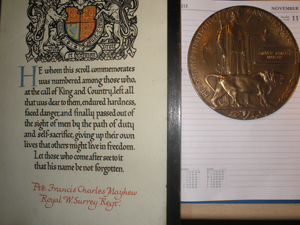 HE whom this scroll commemorates
was numbered among those who,
at the call of King and Country, left all
that was dear to them, endured hardness,
faced danger, and finally passed out of
the sight of men by the path of duty
and self-sacrifice, giving up their own
lives that others might live in freedom.
Let those who come after see to it
that his name be not forgotten.
Pte. Francis Charles Mayhew
Royal W. Surrey Regt.
NOVEMBER
11